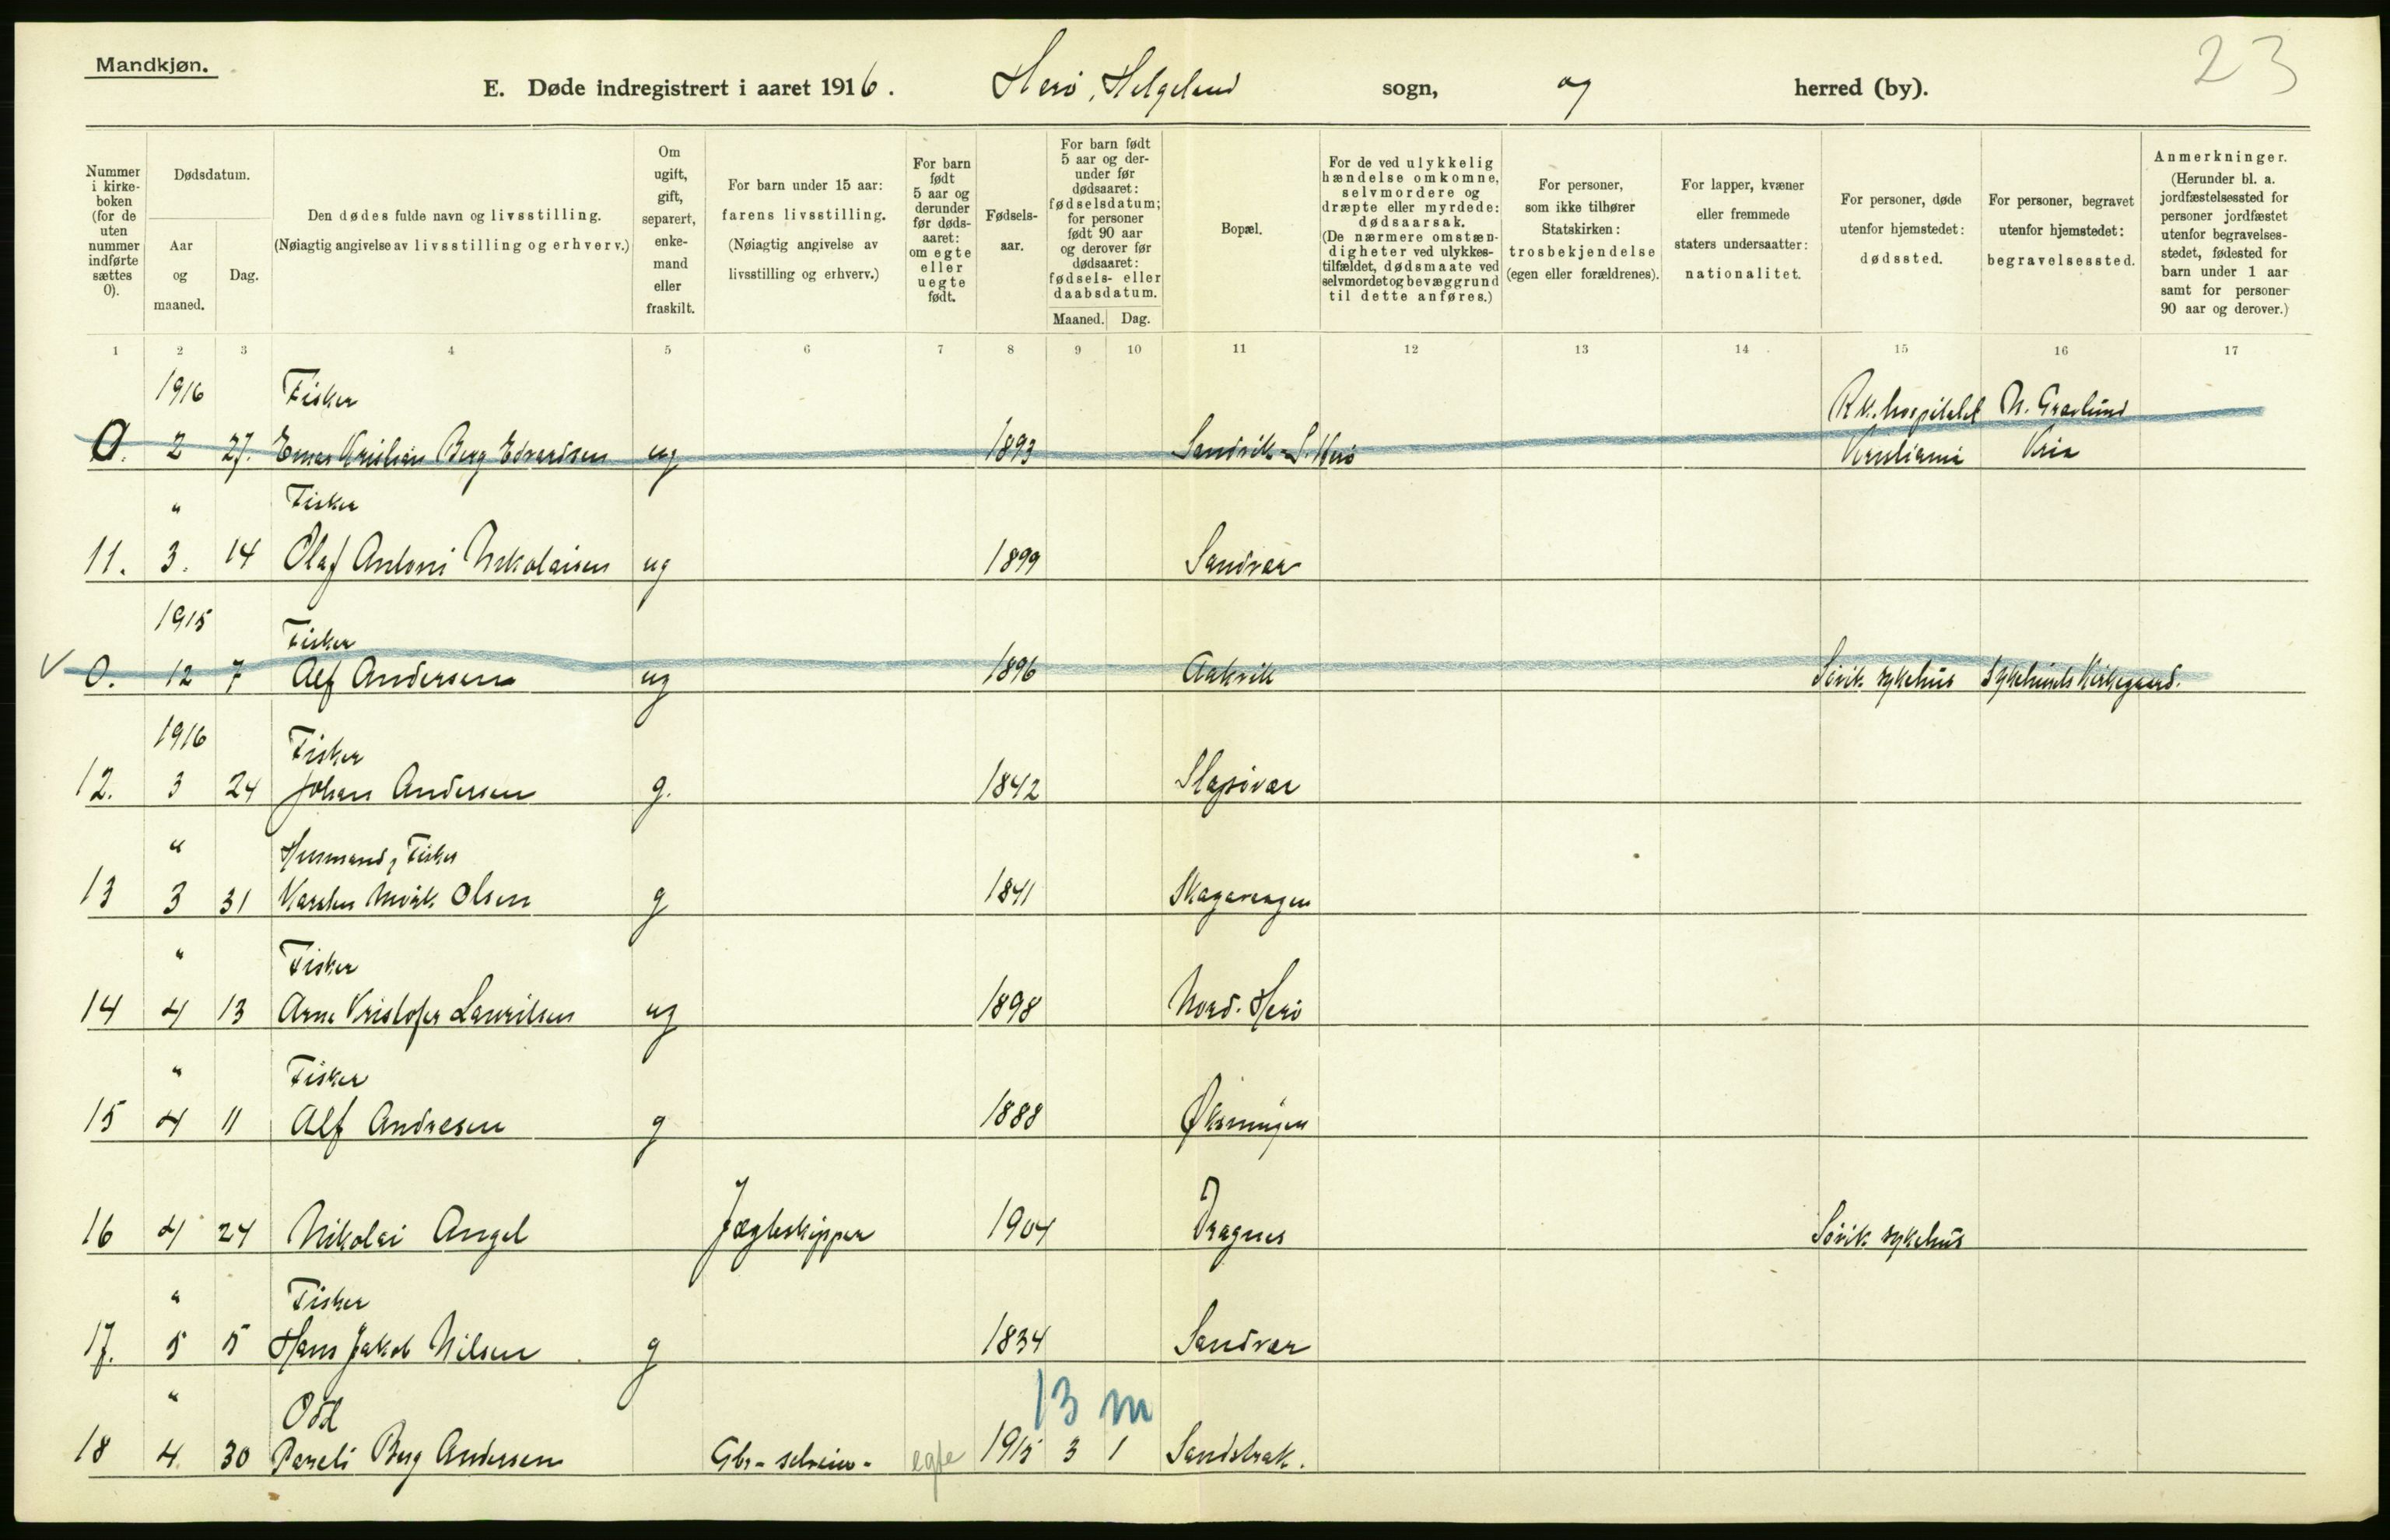 Mandkjøn.
23
E. Døde indregistrert i aaret 1916. Herø, Helgeland sogn, og herred (by).
Nummer i kirke-boken (for de uten nummer indførte sættes 0).
Dødsdatum.
Aar og maaned.
Dag.
Den dødes fulde navn og livsstilling.
(Nøiagtig angivelse av livsstilling og erhverv.)
Om ugift, gift, separert, enke-mand eller fraskilt.
For barn under 15 aar: farens livsstilling.
(Nøiagtig angivelse av livsstilling og erhverv.)
For barn født 5 aar og derunder før døds-aaret: om egte eller uegte født.
Fødsels-aar.
For barn født 5 aar og der-under før dødsaaret: fødselsdatum; for personer født 90 aar og derover før dødsaaret: fødsels- eller daabsdatum.
Maaned. Dag.
Bopæl.
For de ved ulykkelig hændelse omkomne, selvmordere og dræpte eller myrdede: dødsaarsak.
(De nærmere omstæn-digheter ved ulykkes-tilfældet, dødsmaate ved selvmordet og bevæggrund til dette anføres.)
For personer, som ikke tilhører Statskirken: trosbekjendelse (egen eller forældrenes).
For lapper, kvæner eller fremmede staters undersaatter: nationalitet.
For personer, døde utenfor hjemstedet: dødssted.
For personer, begravet utenfor hjemstedet: begravelsessted.
Anmerkninger.
(Herunder bl. a. jordfæstelsessted for personer jordfæstet utenfor begravelses-stedet, fødested for barn under 1 aar samt for personer 90 aar og derover.)
1 2 3 4 5 6 7 8 9 10 11 12 13 14 15 16 17
1916 Fisker R.k. hospitalet N. Gravlund
0. 2 27. Kristian Berg Edvardsen ug 1893 Sandvik - S. Herø Kristiania Kria
" Fisker
11. 3. 14 Olaf Antoni Nikolaisen ug 1899 Sandvær
1915 Fisker
0. 12 7 Alf Andersen ug 1896 Aakvik Søvik sykehus Sykehusets Kirkegaard.
1916 Fisker
12. 3 24 Johan Andersen g. 1842 Slapøvær
" Husmand, Fisker
13 3 31 Karsten Olsen g 1841
" Fisker
14 4 13 Arne Kristofer Lauritsen ug 1898 Nord-Herø
" Fisker
15 4 11 Alf Andresen g 1888 Øksningen
16 4 24 Nikolai Angel Jægteskipper 1904 Dragnes Søvik sykehus
" Fisker
17. 5 5 Hans Jakob Nilsen g 1834 Sandvær
13 m
" Odd
18 4 30 Pareli Berg Andersen Gbr-selveier- egte 1915 3 1 Sandstrak.